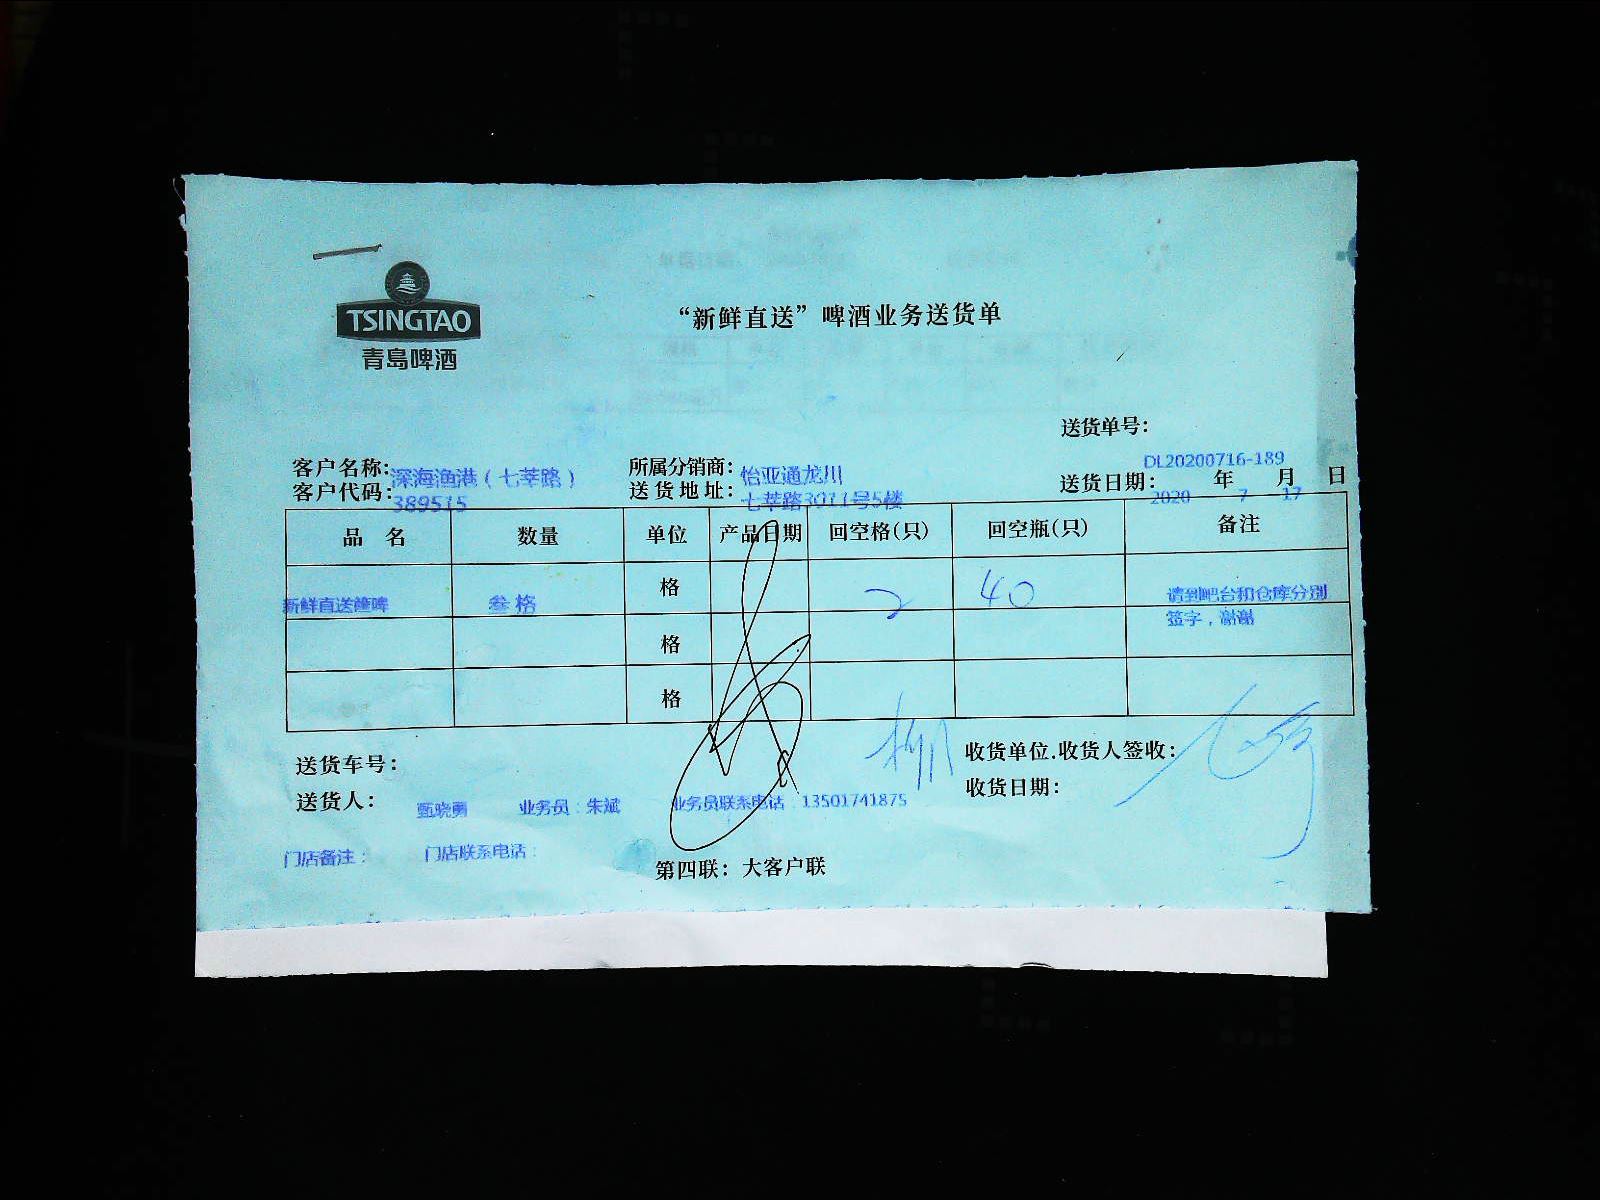 TSINGTAO
青岛啤酒
“新鲜直送”啤酒业务送货单
送货单号：
DL20200716-189
客户名称：深海渔港（七莘路） 所属分销商：怡亚通龙川
客户代码：389515 送货地址：七莘路3011号5楼 送货日期：2020 年 7 月 17 日
品 名 数量 单位 产品日期 回空格(只) 回空瓶(只) 备注
新鲜直送 叁格 格 2 40 请到吧台和仓库分别
签字，谢谢
格
格
送货车号： 收货单位.收货人签收：
收货日期：
送货人： 甄晓勇 业务员：朱斌 业务员联系电话：13501741875
门店备注： 门店联系电话：
第四联：大客户联